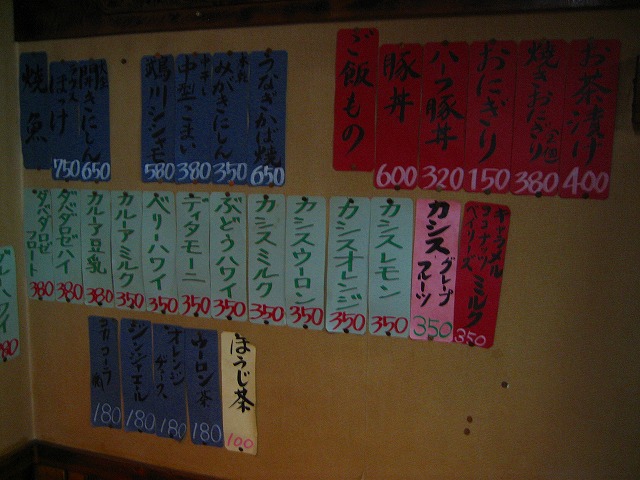 ご飯もの
豚丼 600
ハーフ豚丼 320
おにぎり 150
焼きおにぎり 380
お茶漬け 400
焼魚
ほっけ 750
開きにしん 650
鵡川シシャモ 580
中型こまい 380
みがきにしん 350
うなぎかば焼 650
キャラメル ココナッツ ベイリーズ ミルク 350
カシス グレープフルーツ 350
カシスレモン 350
カシスオレンジ 350
カシスウーロン 350
カシスミルク 350
ぶどうハワイ 350
ディタモーニ 350
ベリーハワイ 350
カルーアミルク 350
カルーア豆乳 380
ダバダロゼハイ 380
ダバダロゼフロート 380
ブルーハワイ
ほうじ茶 100
ウーロン茶 180
オレンジ 180
ジンジャエール 180
コカ・コーラ 180